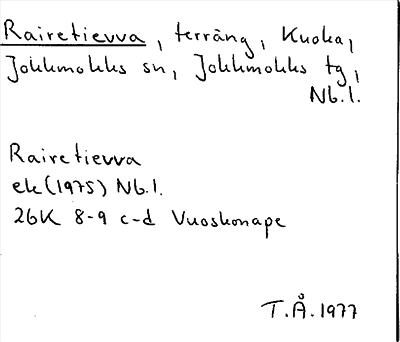 Rairetievva, terräng, Kuoka,
Jokkmokks sn, Jokkmokks tg,
Nb.l.
Rairetievva
ek(1975) Nb.l.
26K 8-9 c-d Vuoskonape
T.Å.1977